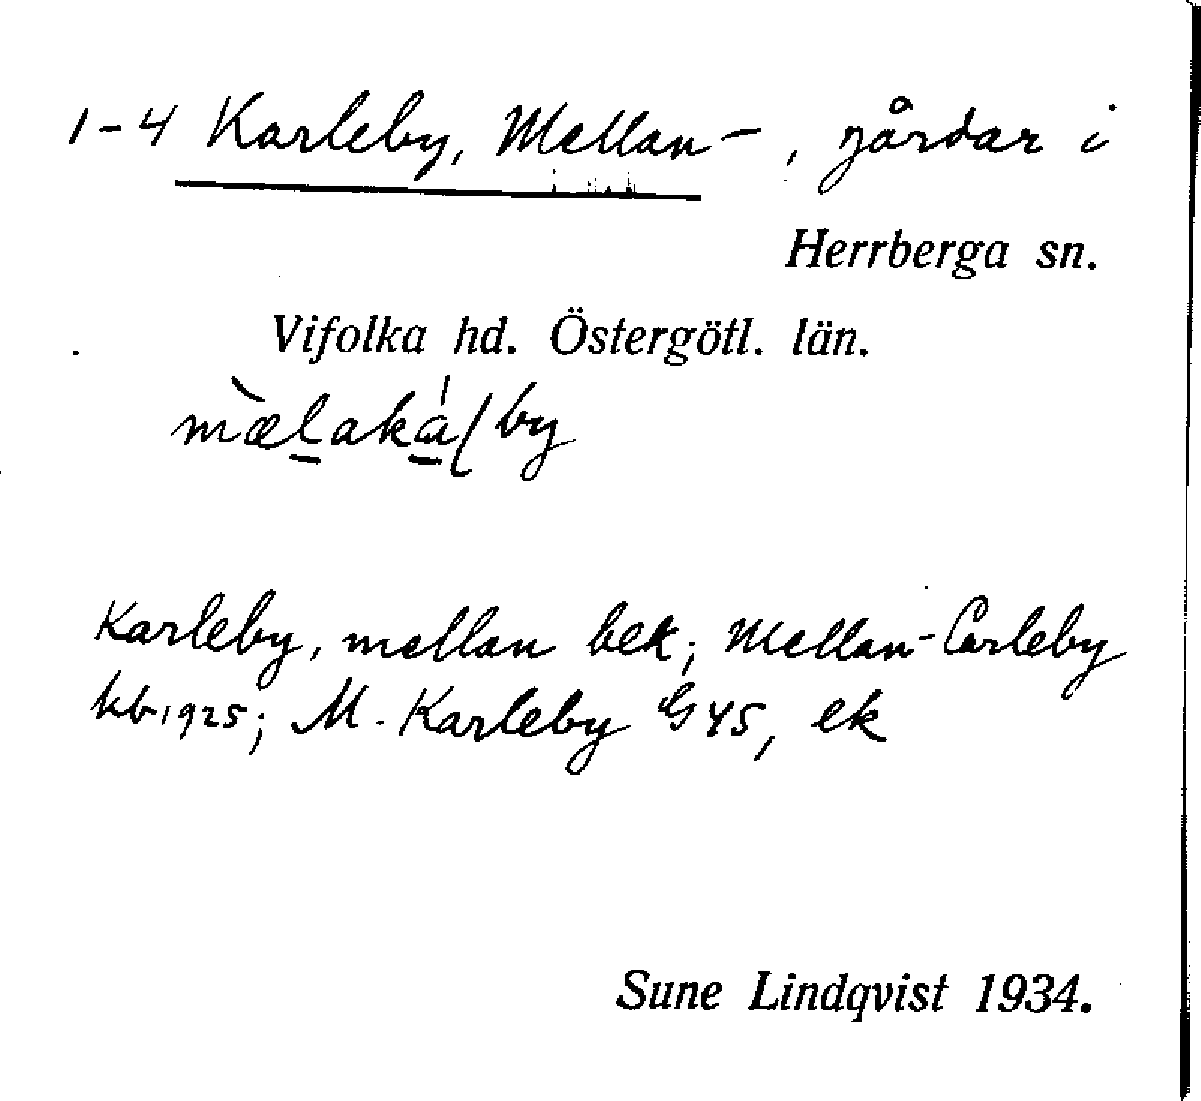 1-4 Karleby, Mellan-, gårdar i
Herrberga sn.
Vifolka hd. Östergötl. län.
Karleby, mellan bek; Mellan-Carleby
kb 1925; M. Karleby G45, ek
Sune Lindqvist 1934.